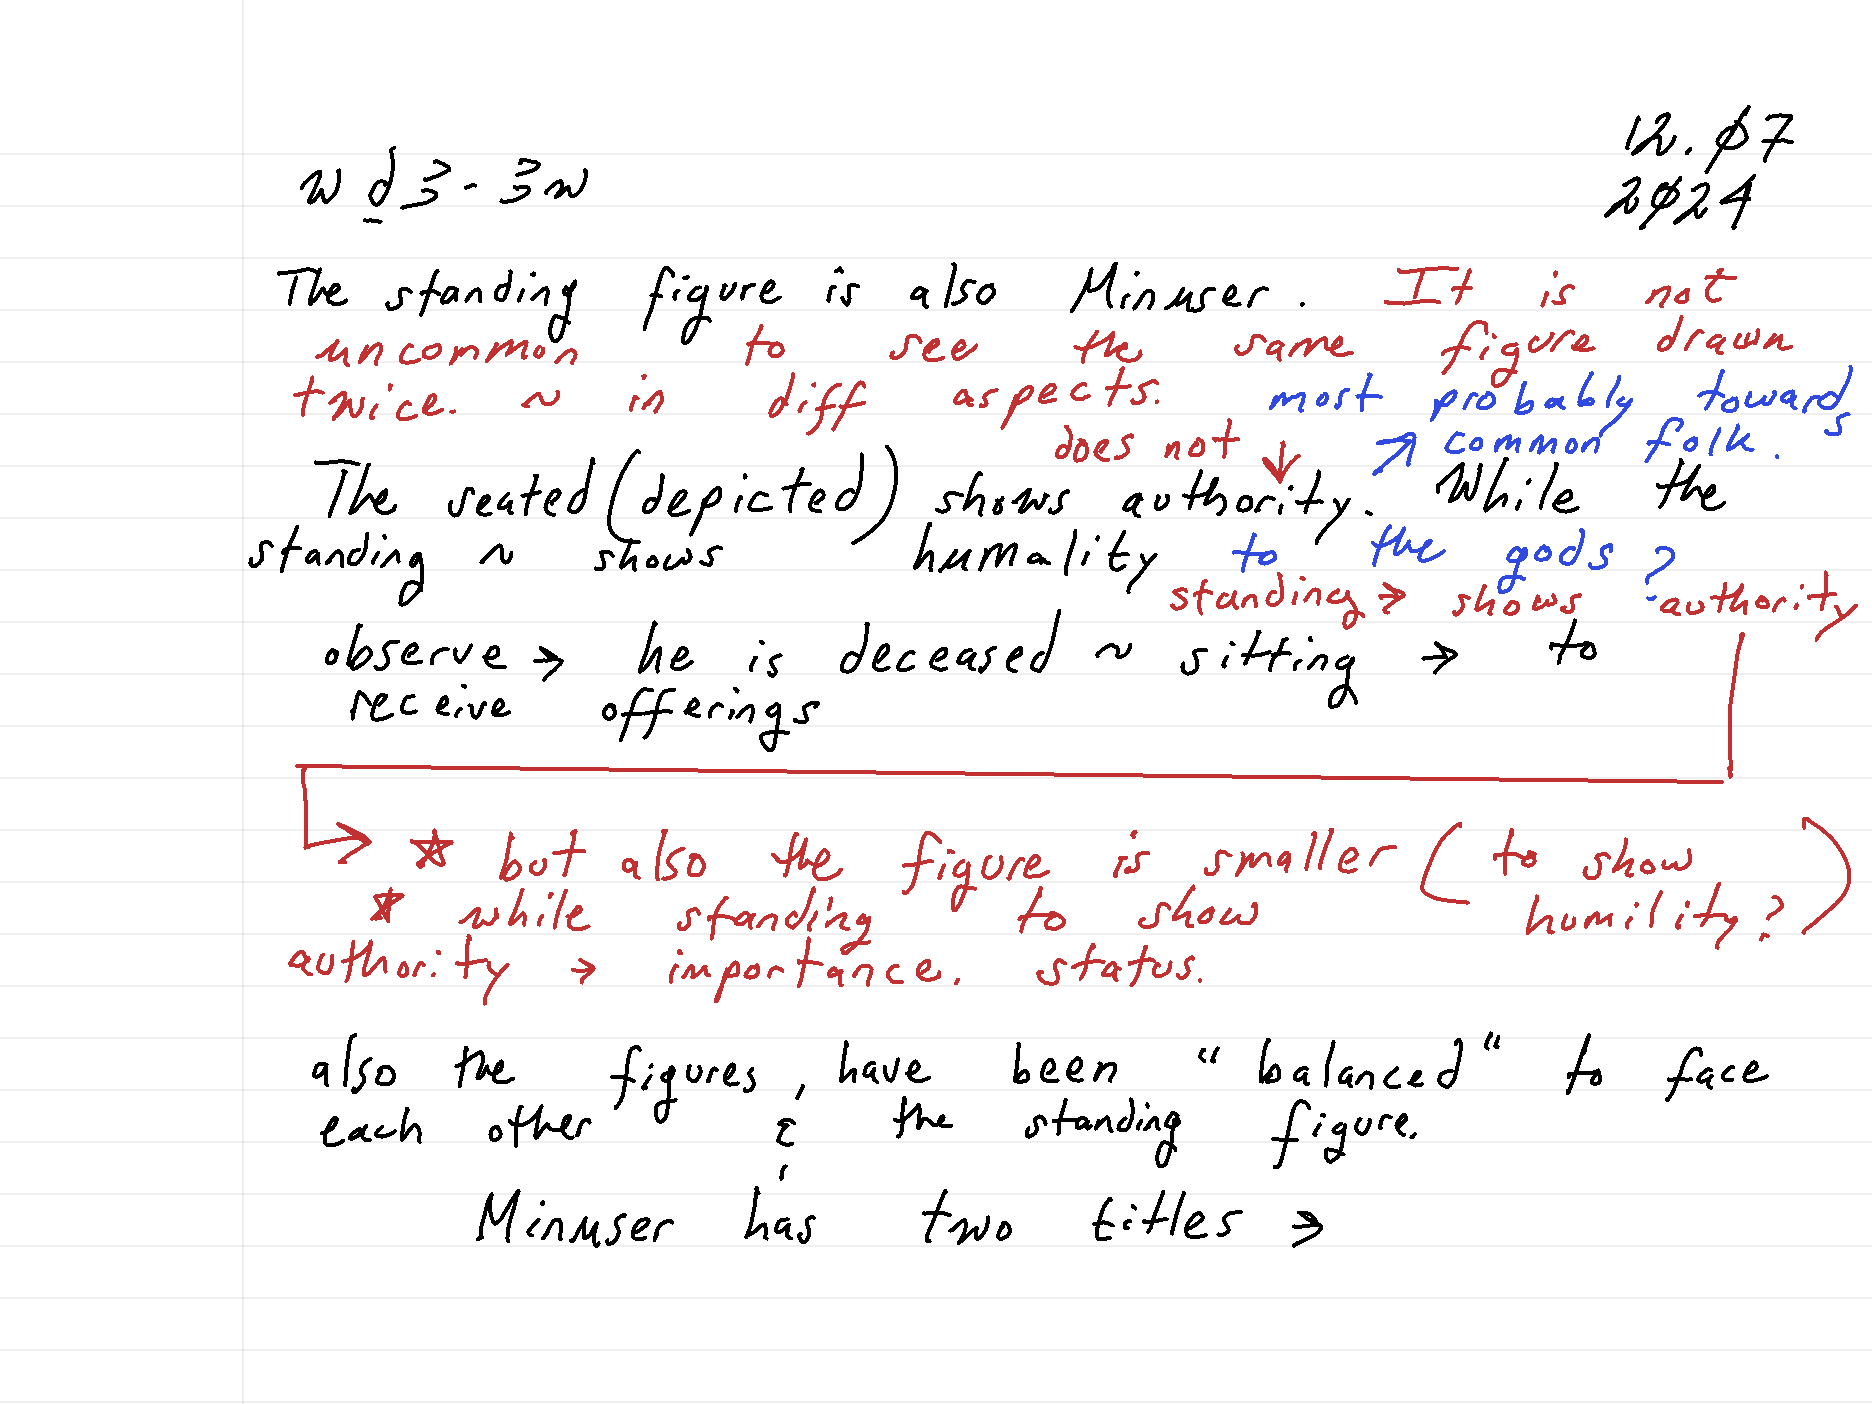 12.07
2024
wḏ3-3w
The standing figure is also Minuser. It is not
uncommon to see the same figure drawn
twice. ~ in diff aspects. most probably towards
does not ↓ ↗ common folk.
The seated (depicted) shows authority. While the
standing ~ shows humality to the gods?
standing → shows authority
observe → he is deceased ~ sitting → to
receive offerings
→ ☆ but also the figure is smaller (to show
☆ while standing to show humility?)
authority → importance. status.
also the figures, have been “balanced“ to face
each other & the standing figure.
Minuser has two titles →